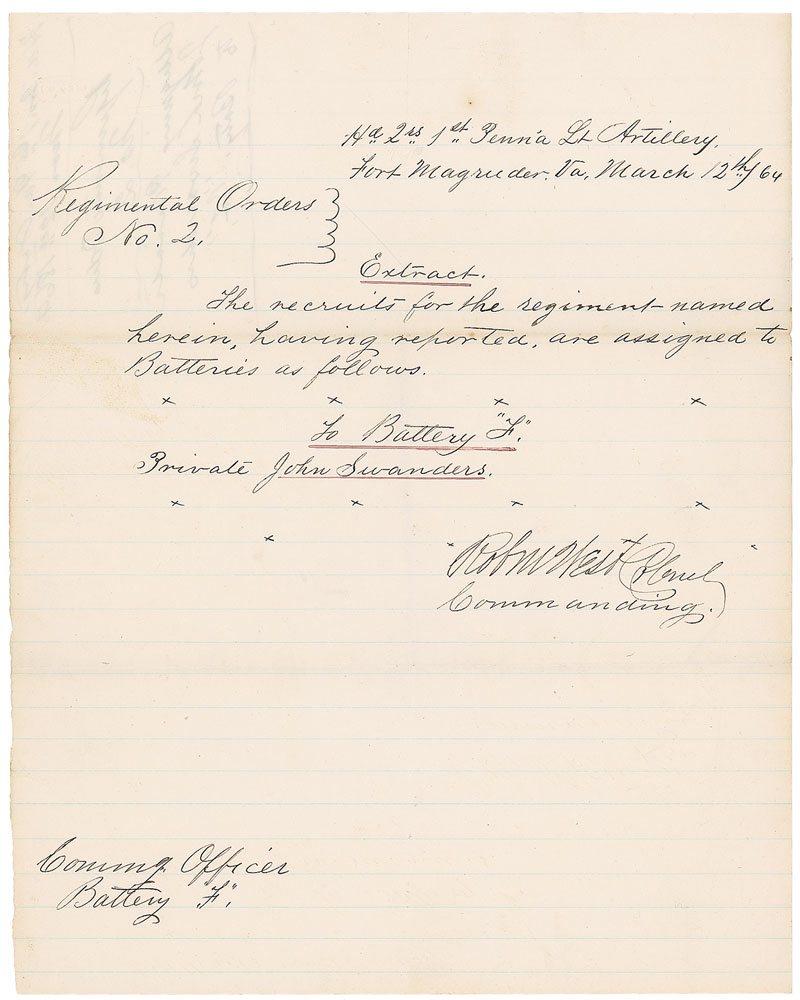 Hd. Qrs. 1st Penn'a Lt Artillery.
Fort Magruder. Va, March 12th/64
Regimental Orders
No. 2.
Extract.
The recruits for the regiment named
herein, having reported, are assigned to
Batteries as follows.
x x x x
To Battery "F".
Private John Swanders.
x x x x
x
" Robt M West Colonel "
Commanding.
Commg. Officer
Battery "F".